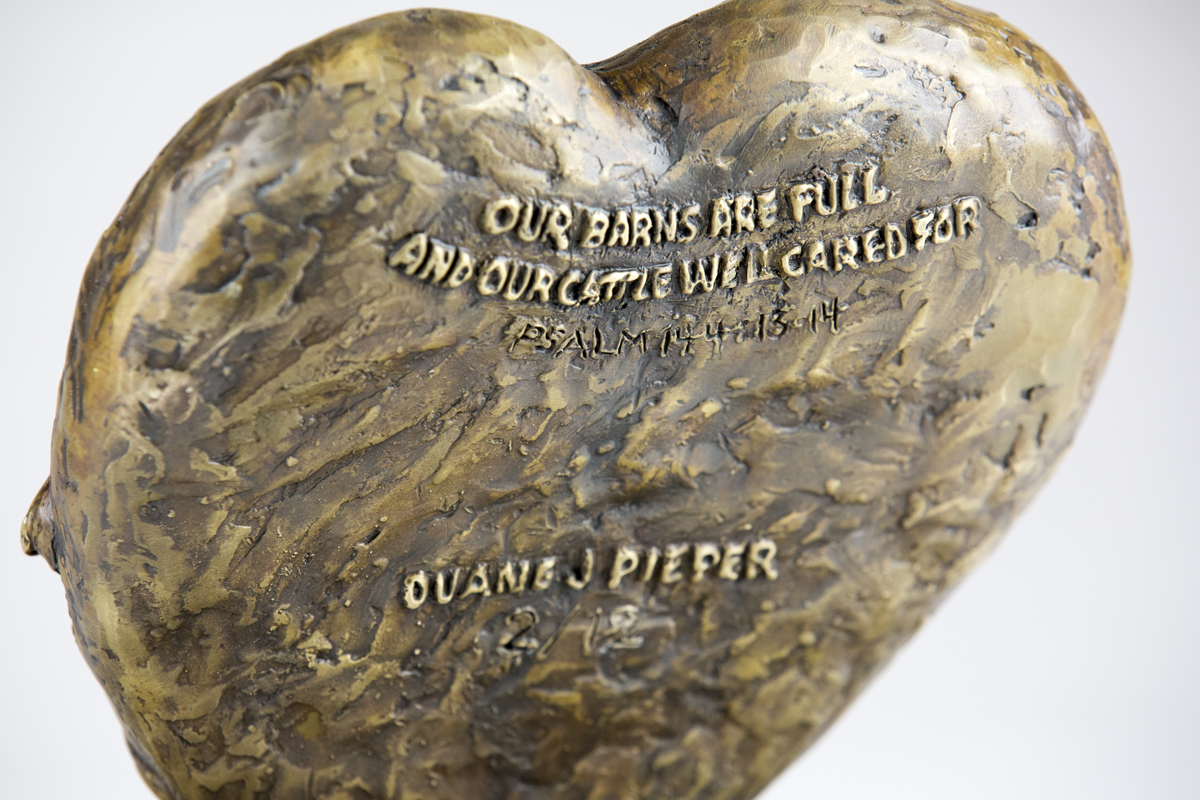 OUR BARNS ARE FULL
AND OUR CATTLE WELL CARED FOR
PSALM 144:13-14
DUANE J PIEPER
2/12